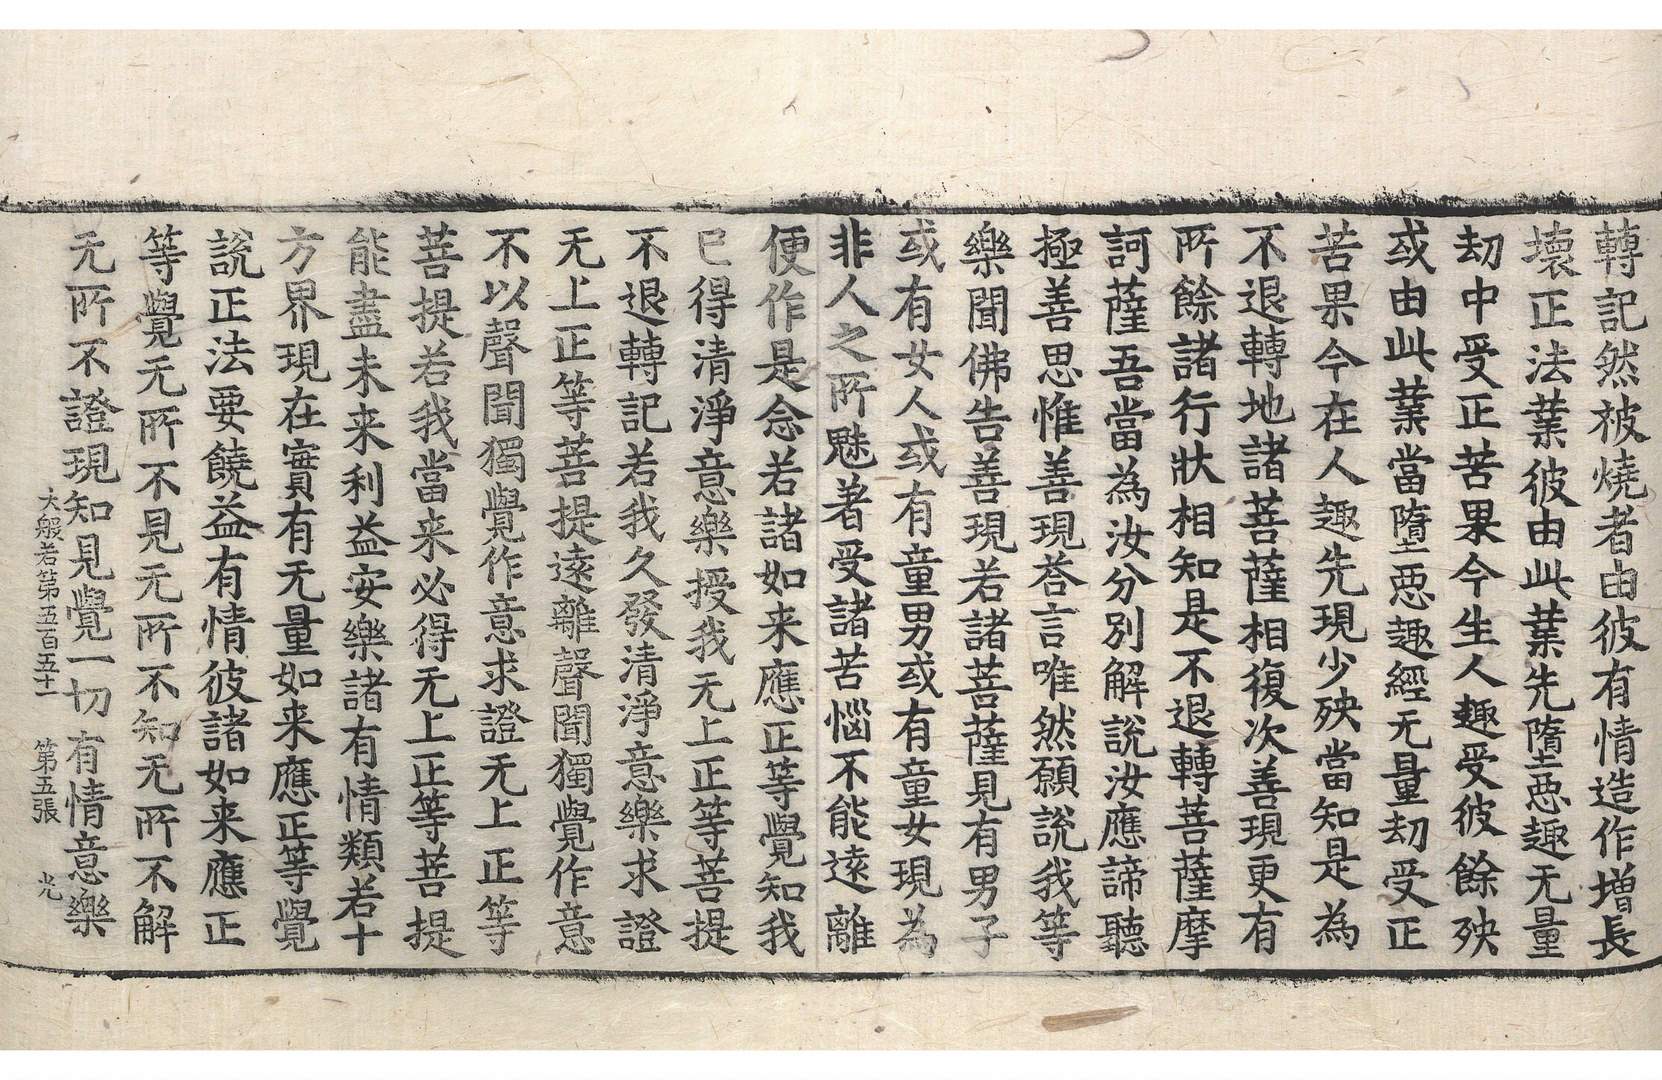 轉記然被燒者由彼有情造作增長
壞正法業彼由此業先墮惡趣无量
劫中受正苦果今生人趣受彼餘殃
或由此業當墮惡趣經无量劫受正
苦果今在人趣先現少殃當知是為
不退轉地諸菩薩相復次善現更有
所餘諸行狀相知是不退轉菩薩摩
訶薩吾當為汝分別解說汝應諦聽
極善思惟善現荅言唯然願說我等
樂聞佛告善現若諸菩薩見有男子
或有女人或有童男或有童女現為
非人之所魅著受諸苦惱不能遠離
便作是念若諸如来應正等覺知我
已得清淨意樂授我无上正等菩提
不退轉記若我久發清淨意樂求證
无上正等菩提遠離聲聞獨覺作意
不以聲聞獨覺作意求證无上正等
菩提若我當来必得无上正等菩提
能盡未来利益安樂諸有情類若十
方界現在實有无量如来應正等覺
說正法要饒益有情彼諸如来應正
等覺无所不見无所不知无所不解
无所不證現知見覺一切有情意樂
大般若第五百五十一 第五張 光